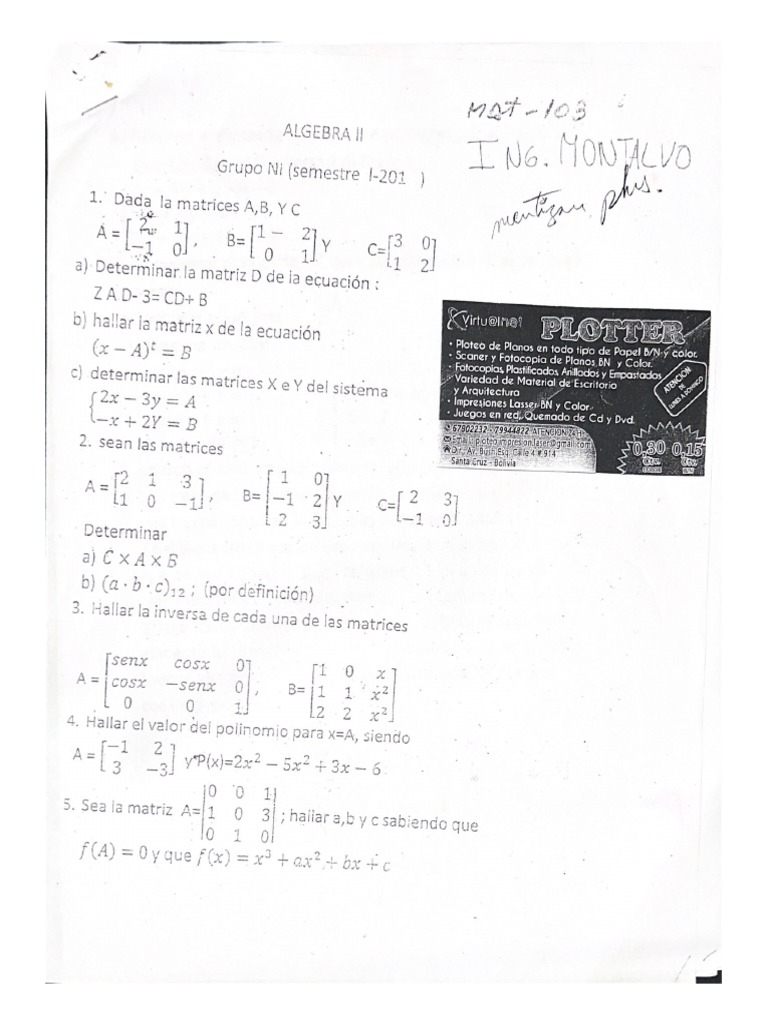 MAT-103
ALGEBRA II
ING. MONTALVO
Grupo NI (semestre I-201 )
plus.
1. Dada la matrices A,B, Y C
A = [2 1; -1 0], B= [1 - 2; 0 1] Y C= [3 0; 1 2]
a) Determinar la matriz D de la ecuación :
Z A D- 3= CD+ B
b) hallar la matriz x de la ecuación
(x − A)ᵗ = B
c) determinar las matrices X e Y del sistema
{2x − 3y = A
−x + 2Y = B
2. sean las matrices
A = [2 1 3; 1 0 −1], B= [1 0; −1 2; 2 3] Y C= [2 3; −1 0]
Determinar
a) C × A × B
b) (a · b · c)₁₂ ; (por definición)
3. Hallar la inversa de cada una de las matrices
A = [senx cosx 0; cosx −senx 0; 0 0 1], B= [1 0 x; 1 1 x²; 2 2 x²]
4. Hallar el valor del polinomio para x=A, siendo
A = [−1 2; 3 −3] y P(x)=2x² − 5x² + 3x − 6
5. Sea la matriz A= |0 0 1; 1 0 3; 0 1 0| ; hallar a,b y c sabiendo que
f(A) = 0 y que f(x) = x³ + ax² + bx + c
Virtu@lnet PLOTTER
• Ploteo de Planos en todo tipo de Papel B/N y color.
• Scaner y Fotocopia de Planos, BN y Color.
• Fotocopias, Plastificados, Anillados y Empastados
• Variedad de Material de Escritorio
y Arquitectura
• Impresiones Lasser BN y Color.
• Juegos en red, Quemado de Cd y Dvd.
ATENCIÓN
DE
LUNES A DOMINGO
67902232 - 79944822 ATENCION 24 H
Email: ploteo.impresion.laser@gmail.com
Dir.: Av. Bush Esq. Calle 4 # 914
Santa Cruz - Bolivia
0,30 0,15